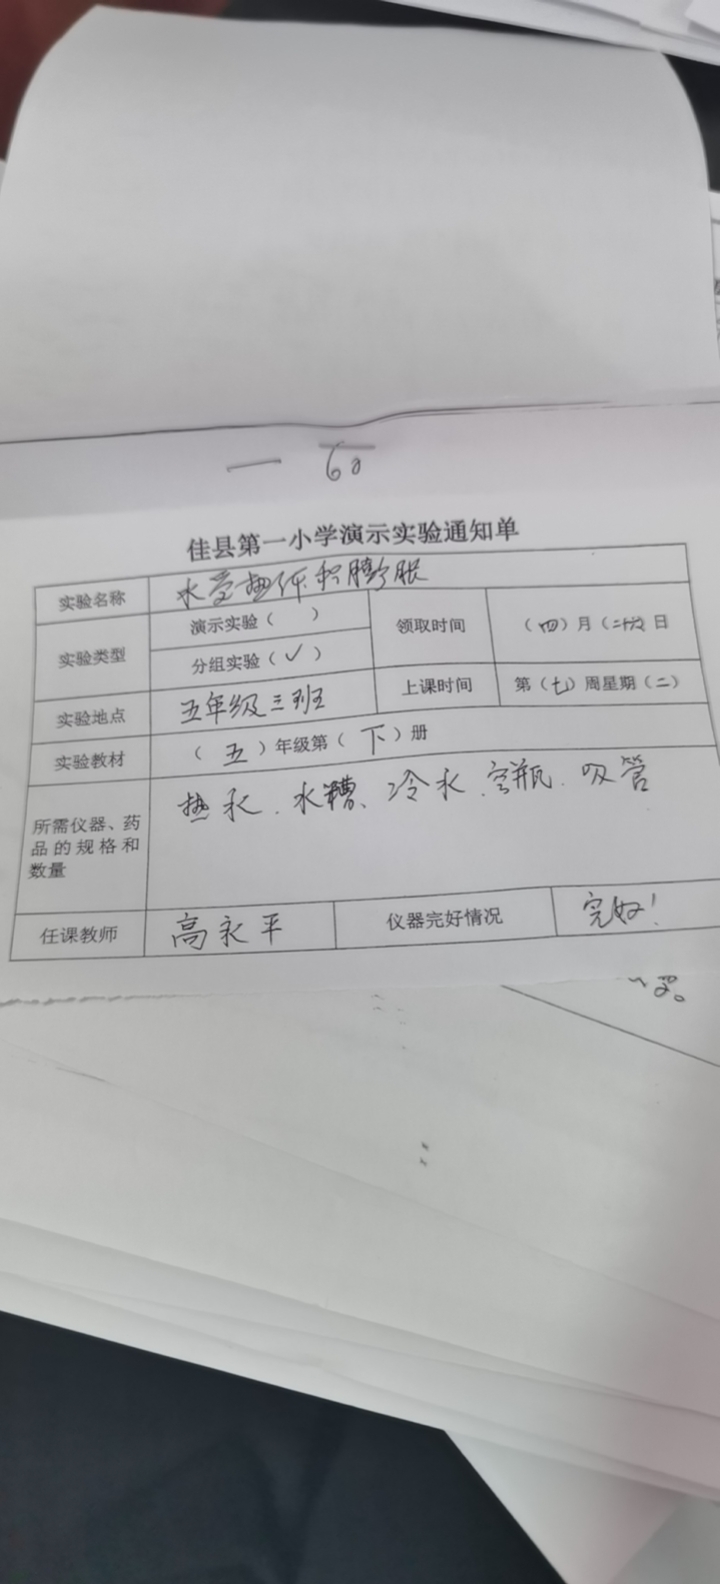 一 60
佳县第一小学演示实验通知单
实验名称 水受热体积膨胀
实验类型 演示实验（ ） 领取时间 （四）月（二十六）日
分组实验（✓）
实验地点 五年级三班 上课时间 第（七）周星期（二）
实验教材 （五）年级第（下）册
所需仪器、药品的规格和数量 热水、水糟、冷水、空瓶、吸管
任课教师 高永平 仪器完好情况 完好！